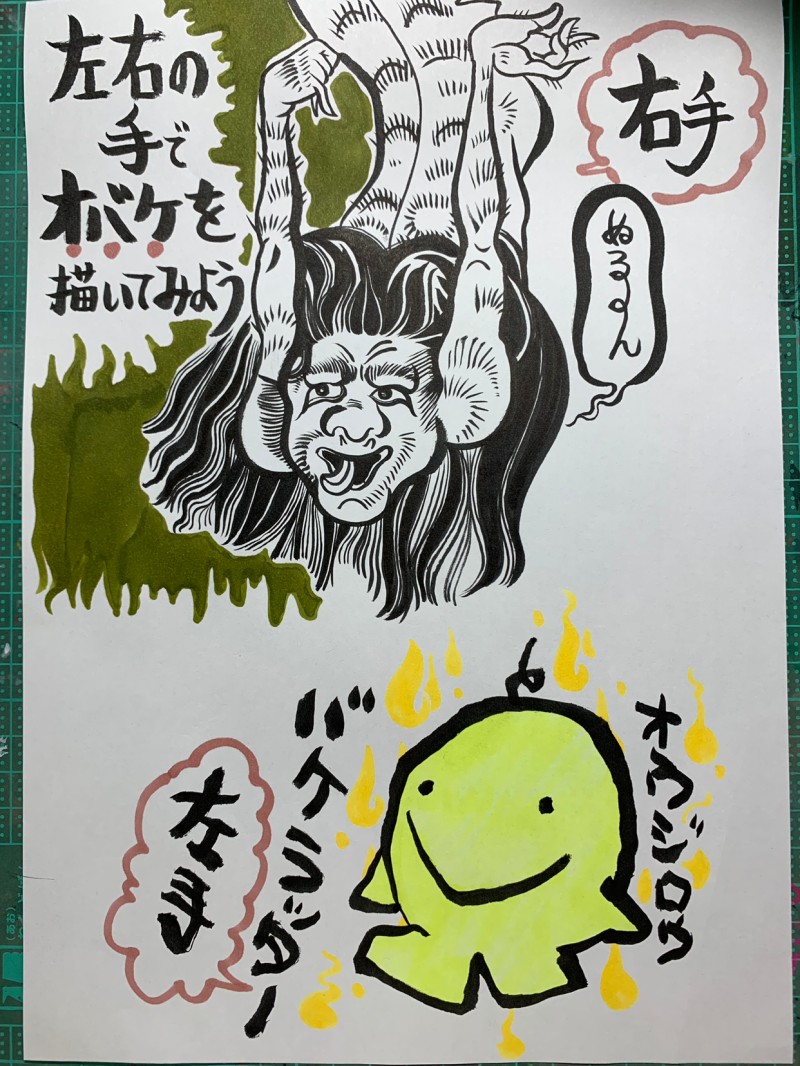 左右の
手で
オバケを
描いてみよう
右手
ぬるるん
オウジロウ
バケラッター
左手